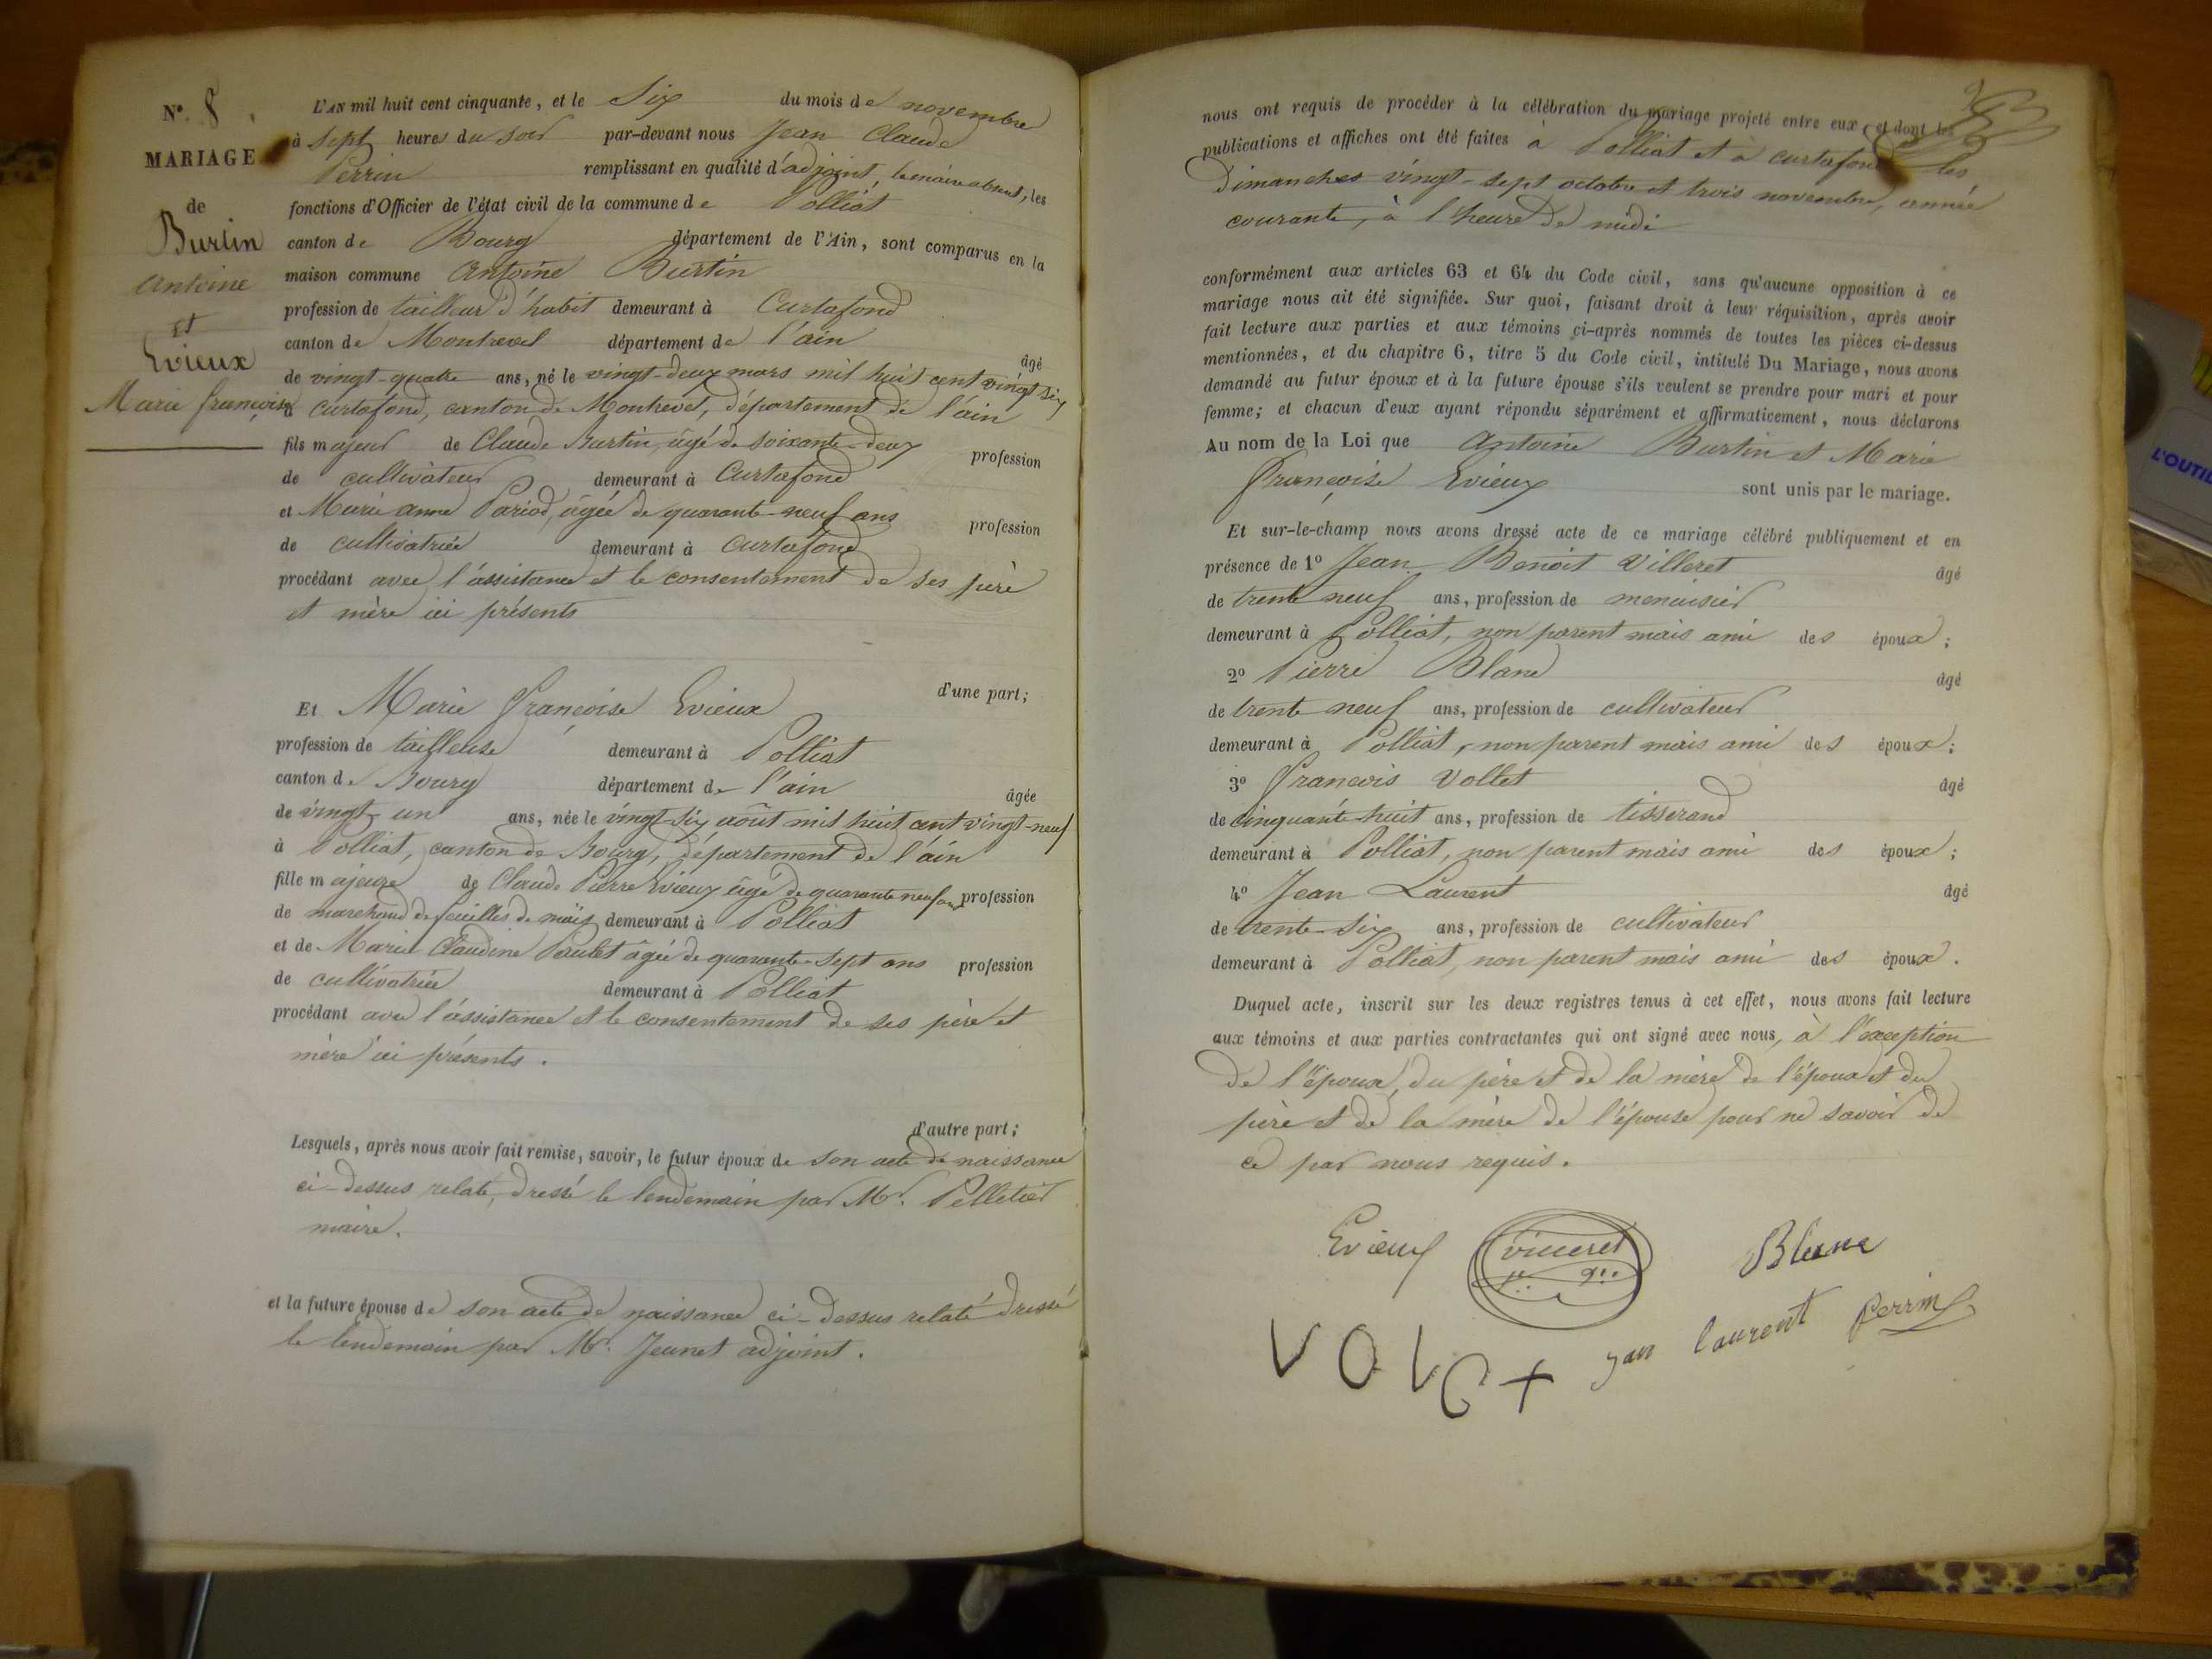 N° 8.
MARIAGE
de
Burtin
antoine
et
Evieux
Marie françoise
L'AN mil huit cent cinquante, et le Six du mois de novembre
à sept heures du soir par-devant nous Jean Claude
Perrin remplissant en qualité d'adjoint, le maire absent, les
fonctions d'Officier de l'état civil de la commune de Polliat
canton de Bourg département de l'Ain, sont comparus en la
maison commune Antoine Burtin
profession de tailleur d'habit demeurant à Curtafond
canton de Montrevel département de l'ain âgé
de vingt-quatre ans, né le vingt-deux mars mil huit cent vingt six
à Curtafond, canton de Montrevel, département de l'ain
fils majeur de Claude Burtin, âgé de soixante-deux profession
de cultivateur demeurant à Curtafond
et Marie anne Pariod, âgée de quarante-neuf ans profession
de cultivatrice demeurant à Curtafond
procédant avec l'assistance et le consentement de ses père
et mère ici présents
d'une part;
Et Marie Françoise Evieux
profession de tailleuse demeurant à Polliat
canton de Bourg département de l'ain âgée
de vingt-un ans, née le vingt-six août mil huit cent vingt-neuf
à Polliat, canton de Bourg, département de l'ain
fille majeure de Claude Pierre Evieux âgé de quarante neuf ans profession
de marchand de feuilles de maïs demeurant à Polliat
et de Marie Claudine Paulet âgée de quarante-sept ans profession
de cultivatrice demeurant à Polliat
procédant avec l'assistance et le consentement de ses père et
mère ici présents.
d'autre part;
Lesquels, après nous avoir fait remise, savoir, le futur époux de son acte de naissance
ci-dessus relaté, dressé le lendemain par Mr. Pelletier
maire.
et la future épouse de son acte de naissance ci-dessus relaté dressé
le lendemain par Mr. Jeunet adjoint.
nous ont requis de procéder à la célébration du mariage projeté entre eux, et dont les
publications et affiches ont été faites à Polliat et à curtafond les
Dimanches vingt-sept octobre et trois novembre, année
courante, à l'heure de midi
conformément aux articles 63 et 64 du Code civil, sans qu'aucune opposition à ce
mariage nous ait été signifiée. Sur quoi, faisant droit à leur réquisition, après avoir
fait lecture aux parties et aux témoins ci-après nommés de toutes les pièces ci-dessus
mentionnées, et du chapitre 6, titre 5 du Code civil, intitulé Du Mariage, nous avons
demandé au futur époux et à la future épouse s'ils veulent se prendre pour mari et pour
femme; et chacun d'eux ayant répondu séparément et affirmativement, nous déclarons
Au nom de la Loi que Antoine Burtin et Marie
Françoise Evieux sont unis par le mariage.
Et sur-le-champ nous avons dressé acte de ce mariage célébré publiquement et en
présence de 1° Jean Benoit Villeret âgé
de trente neuf ans, profession de menuisier
demeurant à Polliat, non parent mais ami des époux;
2° Pierre Blanc âgé
de trente neuf ans, profession de cultivateur
demeurant à Polliat, non parent mais ami des époux;
3° François Vollet âgé
de cinquante-huit ans, profession de tisserand
demeurant à Polliat, non parent mais ami des époux;
4° Jean Laurent âgé
de trente-six ans, profession de cultivateur
demeurant à Polliat, non parent mais ami des époux.
Duquel acte, inscrit sur les deux registres tenus à cet effet, nous avons fait lecture
aux témoins et aux parties contractantes qui ont signé avec nous, à l'exception
de l'époux, du père et de la mère de l'époux et du
père et de la mère de l'épouse pour ne savoir de
ce par nous requis.
Evieux Villeret Blanc
jan laurent Perrin
L'OUTIL